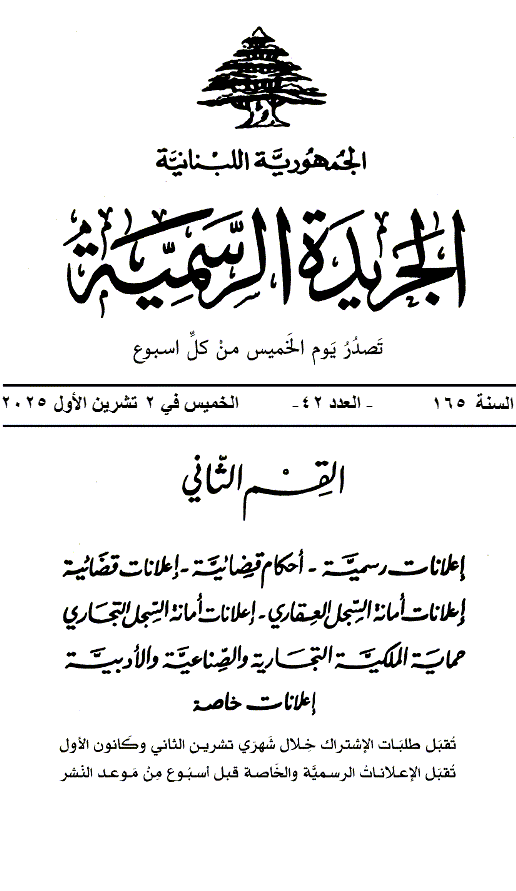 الجُمهُوريَّة اللبْنانيَّة
الجَريدَة الرسَّمِيَّة
تَصدُرُ يَوم الخَميس منْ كلِّ اسبوع
السنة ١٦٥ - العدد ٤٢- الخميس في ٢ تشرين الأول ٢٠٢٥
القِسْم الثّاني
إعلانات رسميَّة - أحكام قضائيَّة - إعلانات قضائية
إعلانات أمانة السِّجل العقاري - إعلانات أمانة السِّجل التجاري
حماية الملكيَّة التجارية والصِّناعيَّة والأدبيَّة
إعلانات خاصة
تُقبَل طلبَات الإشتراك خِلال شَهرَي تشرين الثاني وكَانون الأول
تُقبَل الإعلاناتُ الرسميَّة والخَاصة قبل أسبُوع مِنْ مَوعد النَشر